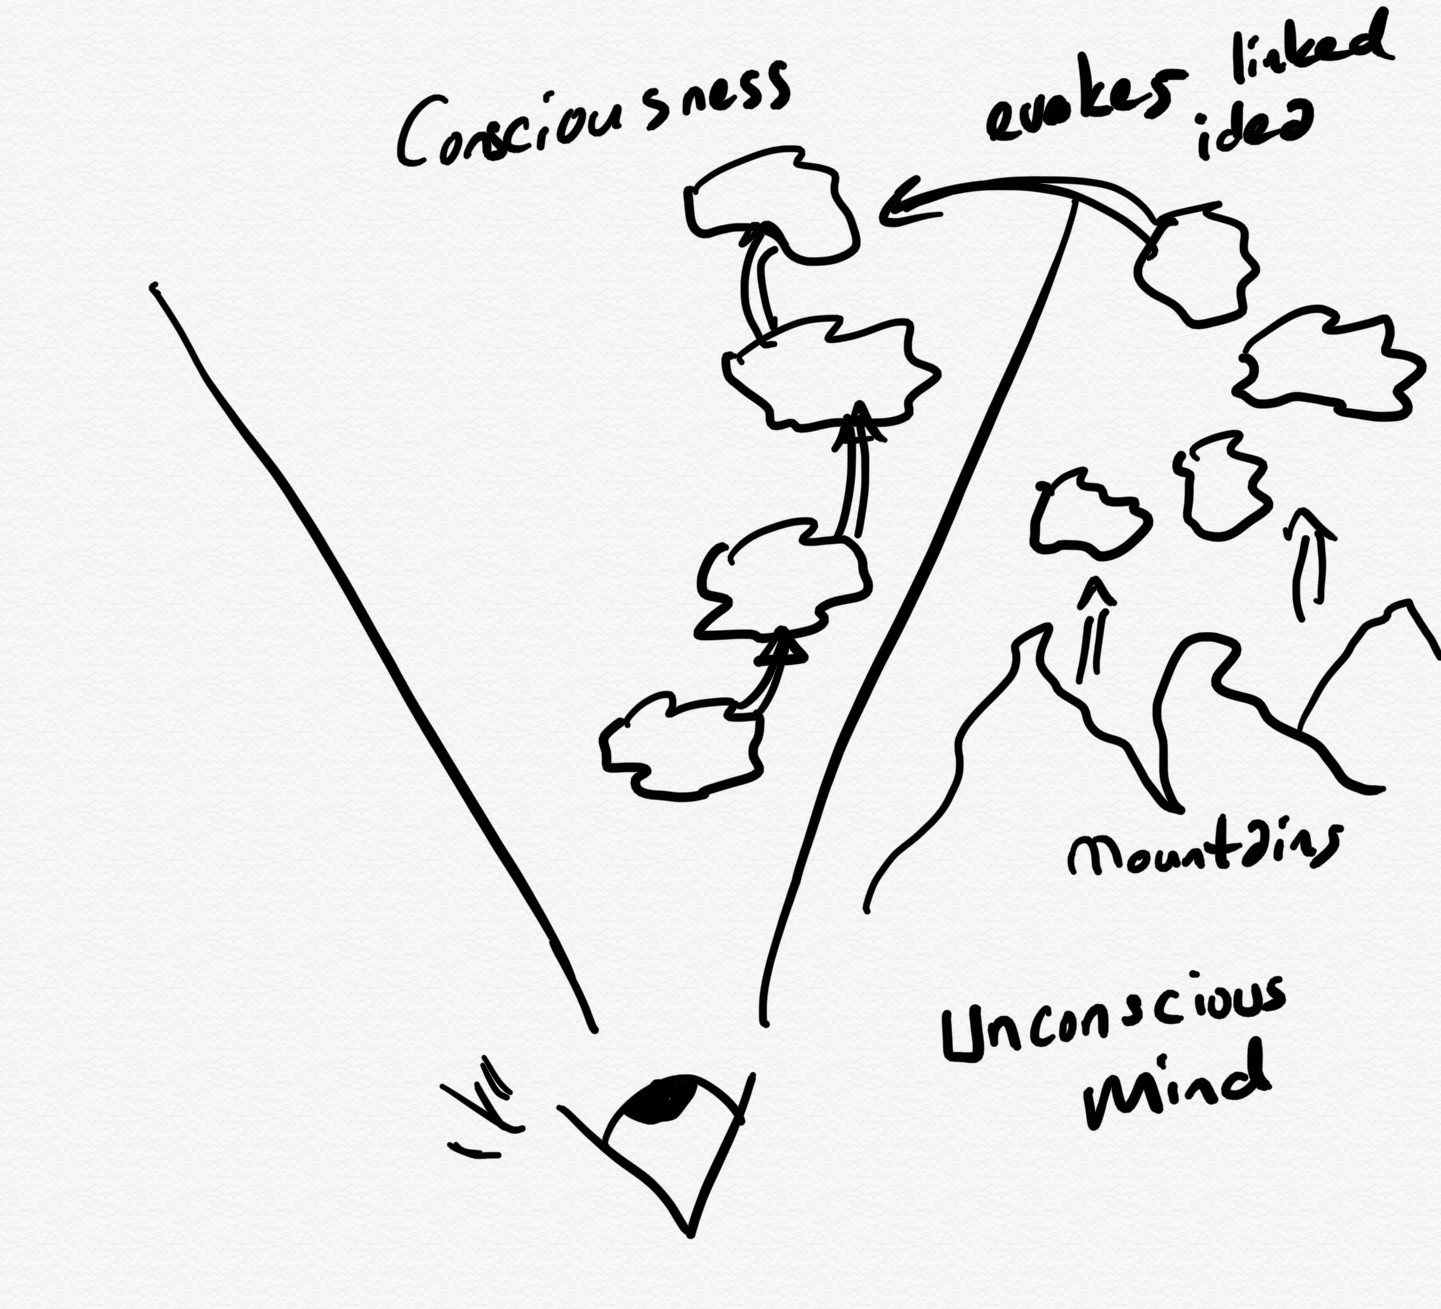 Consciousness
evokes linked
idea
Mountains
Unconscious
Mind